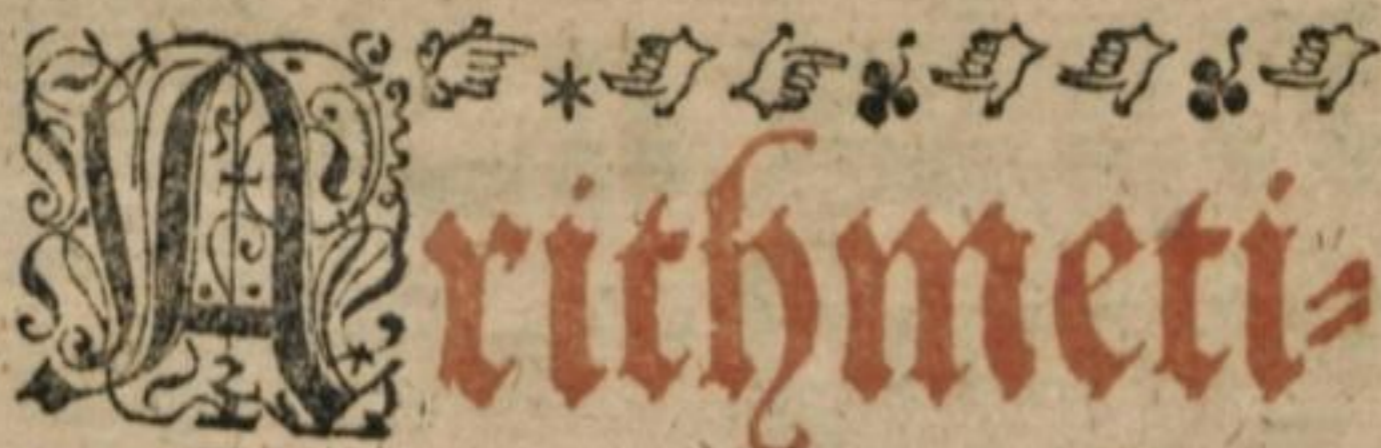 Arithmeti⸗